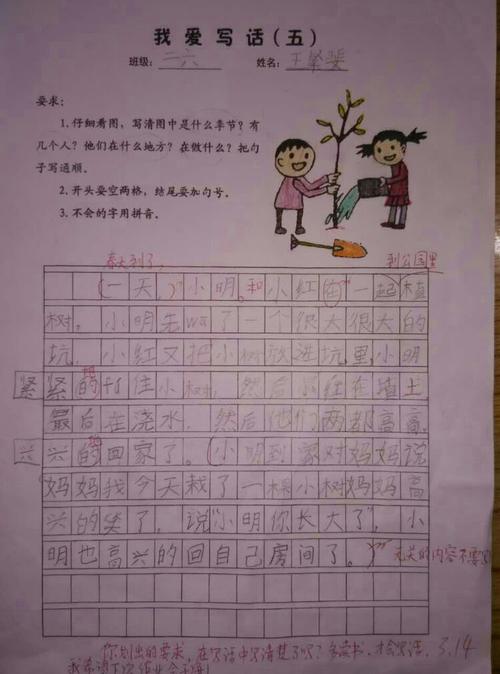 我爱写话（五）
班级：二六 姓名：王
要求：
1.仔细看图，写清图中是什么季节？有
几个人？他们在什么地方？在做什么？把句
子写通顺。
2.开头要空两格，结尾要加句号。
3.不会的字用拼音。
春天到了， 到公园里
一天，小明和小红 一起植
树。小明先wa了一个很大很大的
坑，小红又把小树放进坑里，小明
紧 紧的 住小树，然后 在填土
最后在浇水，然后他们两都高高
兴 兴的回家了。小明到家对妈妈说
妈妈我今天栽了一棵小树妈妈高
兴的笑了，说“小明你长大了”，小
明也高兴的回自己房间了。 无关的内容不要写
你划出的要求，在写话中写清楚了吗？多读书，才会写话。3.14
我希望下次作业会